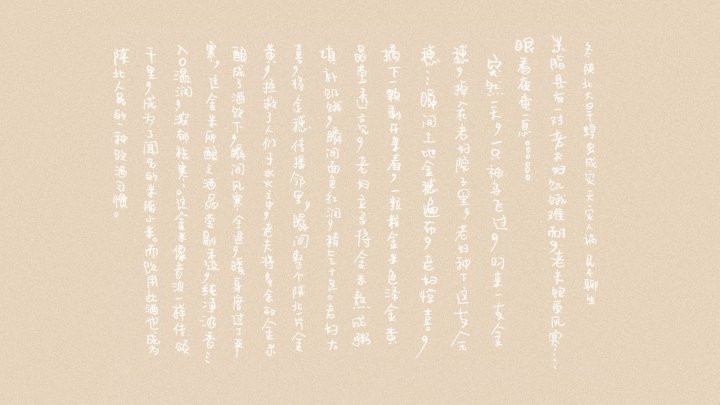 久陕北大旱蝗虫成灾天灾人祸民不聊生
米脂县有一对老夫妇饥饿难耐，老来饱受风寒……
眼看奄奄一息。。。。。。
突然一天，一只神鸟飞过，叼来一支金
穗，掉在老妇院子里，老妇种下这支金
穗…瞬间土地金穗遍布，老妇惊喜。，
摘下一颗剥开里看，一颗颗金米色泽金黄
晶莹透亮，老妇立马将金米熬成粥
填补饥饿，瞬间面色红润，精气十足。老妇大
喜，将金穗传播邻里，瞬间整个陕北一片金
黄，拯救了人们于水火之中，老夫将多余的金米
酿成了酒饮下，瞬间风寒全退，暖身度过了半
寒，这金米所酿之酒晶莹剔透，纯净浓香…
入口温润，浓郁祛寒…。这金米像音浪一样传颂
千里，成为了闻名的米脂小米。而饮用此酒也成为
陕北人民的一种饮酒习惯。